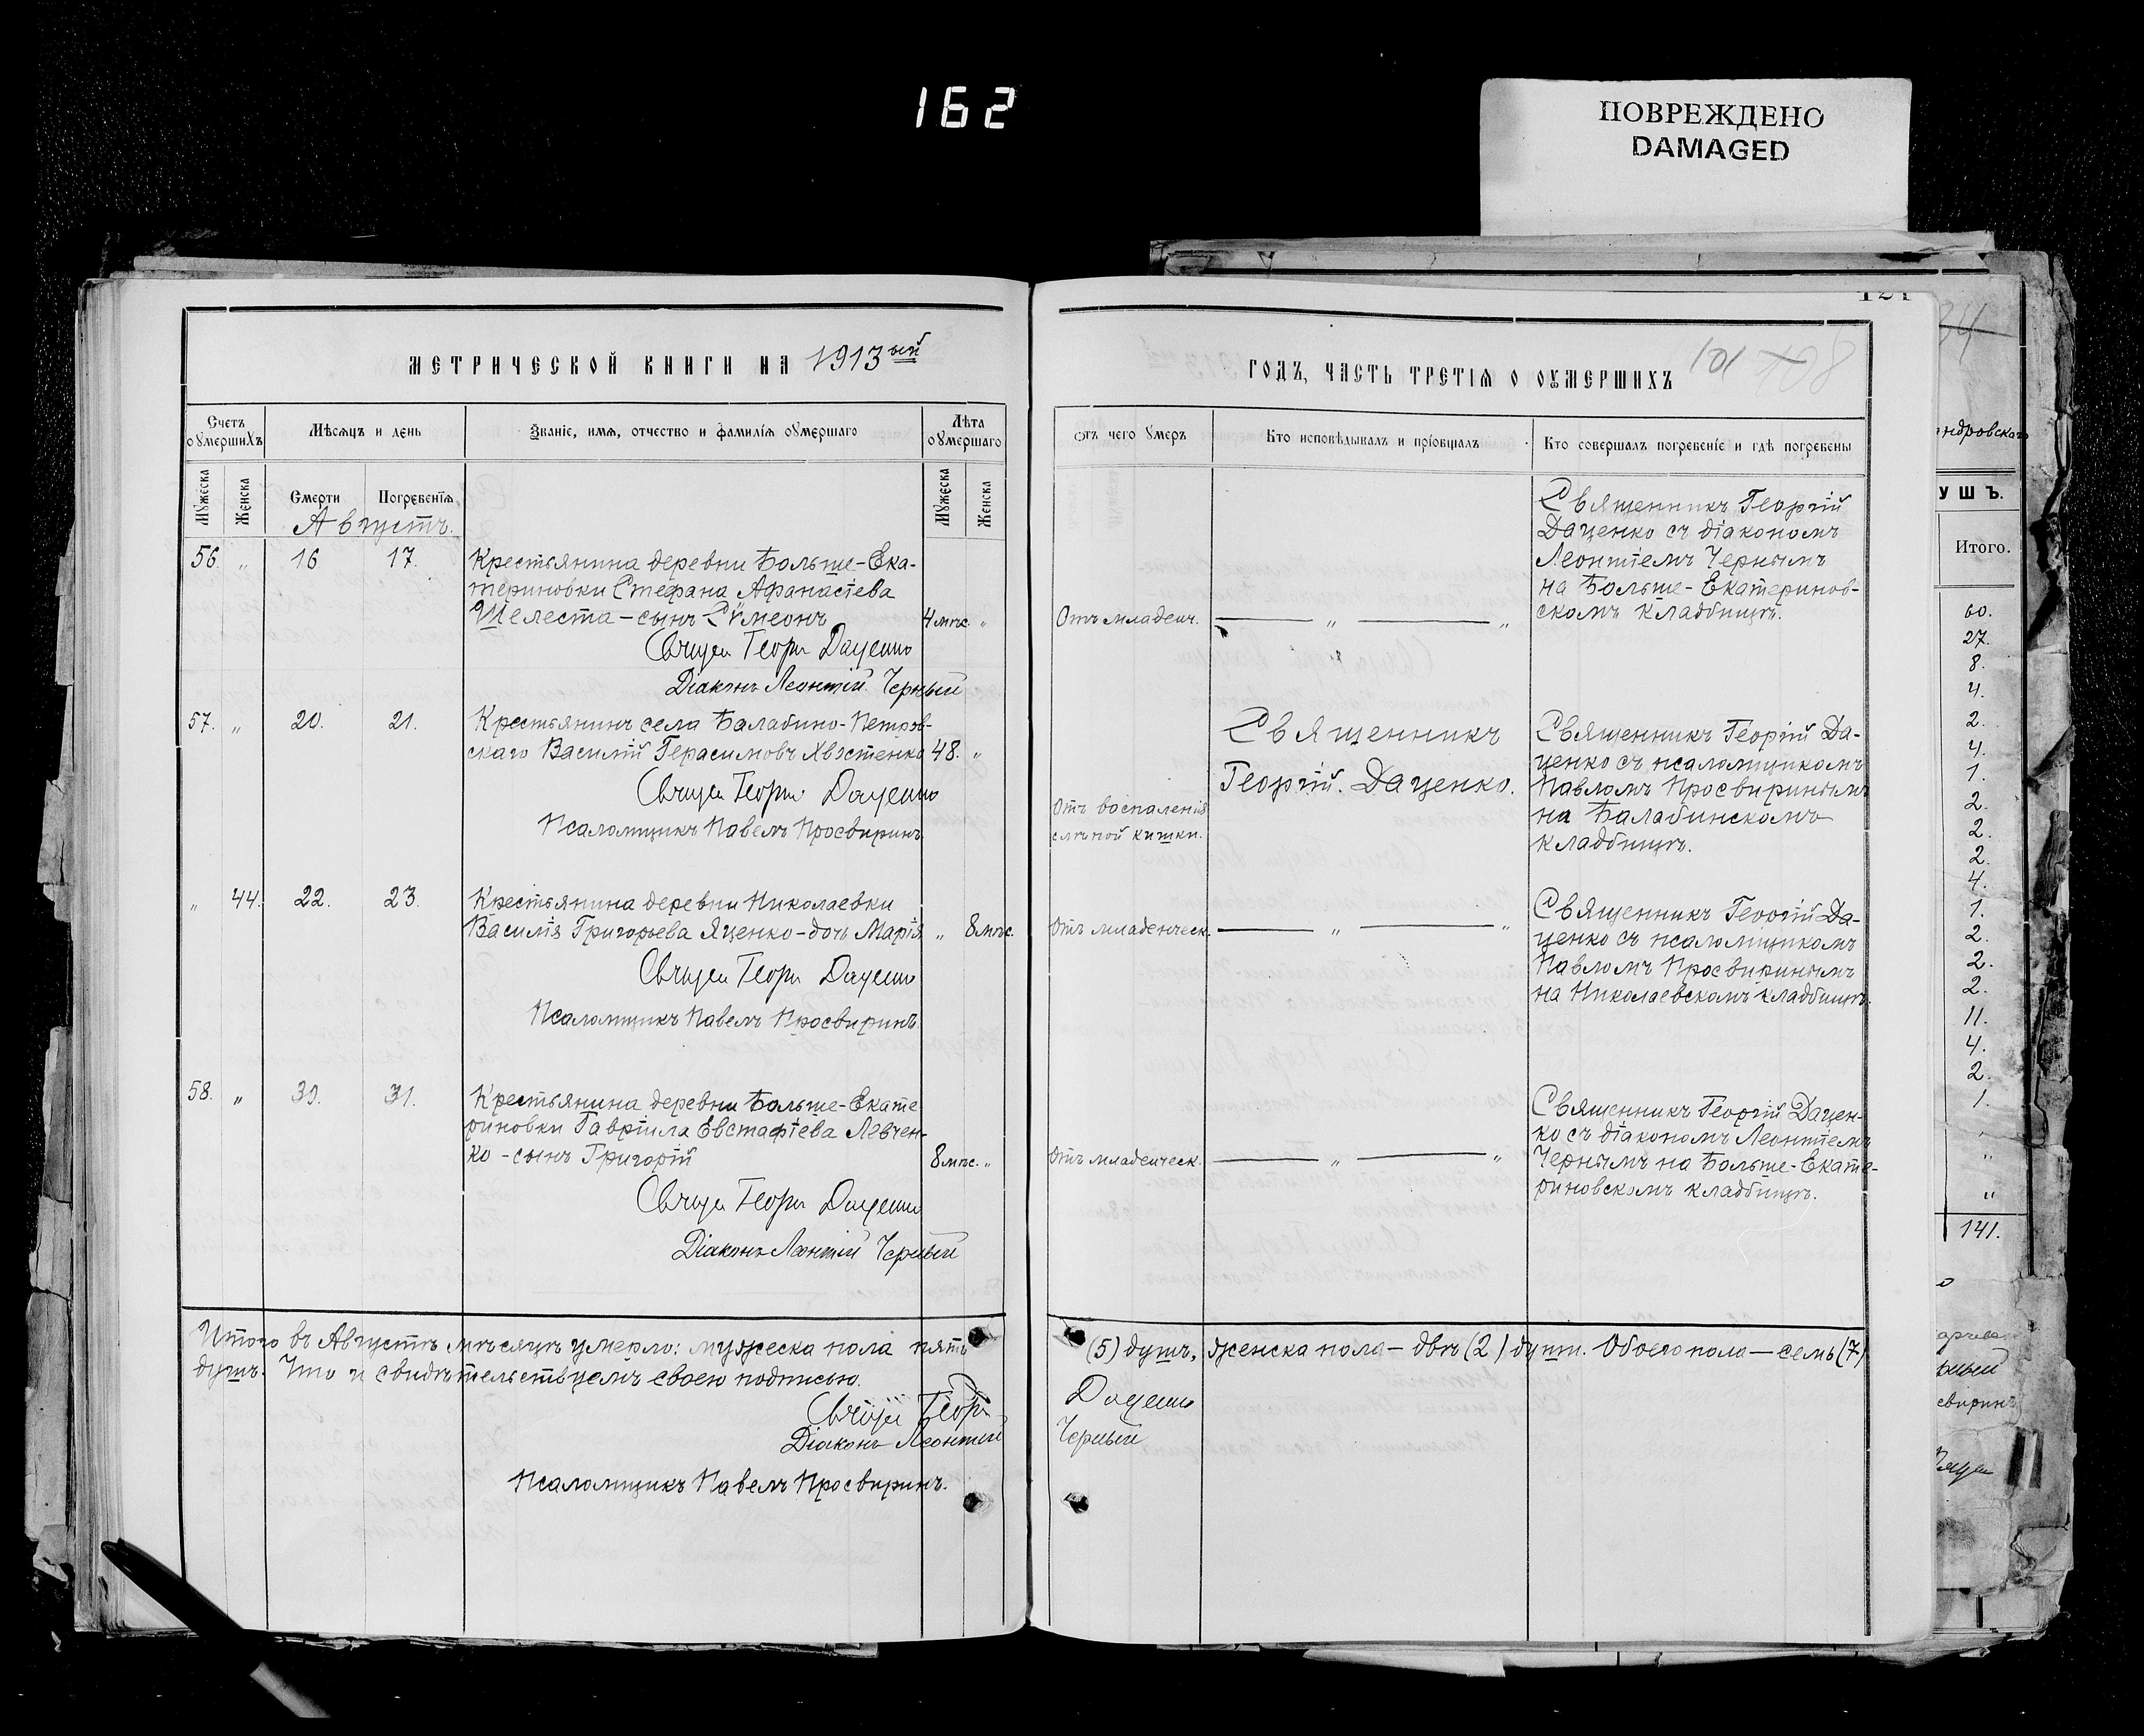 162
ПОВРЕЖДЕНО
DAMAGED
МЕТРИЧЕСКОЙ КНИГИ НА 1913ый
ГОДЪ, ЧАСТЬ ТРЕТІЯ О ОУМЕРШИХЪ
101
Счетъ оумершихъ
Мѣсяцъ и день
Званіе, имя, отчество и фамилія оумершаго
Лѣта оумершаго
Мужеска
Женска
Смерти
Погребенїя
Мужеска
Женска
Отъ чего умеръ
Кто исповѣдывалъ и прїобщалъ
Кто совершалъ погребенїе и гдѣ погребены
Августъ.
56. „ 16 17. Крестьянина деревни Больше-Ека-
териновки Стефана Афанасіева
Шелеста – сынъ Сѵмеонъ 4 мѣс. „
Отъ младенч. — „ — „
Священникъ Георгій
Даценко съ діакономъ
Леонтіемъ Чернымъ
на Больше-Екатеринов-
скомъ кладбищѣ.
Священ Георгі Даценко
Діаконъ Леонтій Черный
57. „ 20. 21. Крестьянинъ села Балабино-Петров-
скаго Василій Герасимовъ Хвостенко 48. „
Отъ воспаленія
слѣпой кишки.
Священникъ
Георгій Даценко.
Священникъ Георгій Да-
ценко съ псаломщикомъ
Павломъ Просвиринымъ
на Балабинскомъ
кладбищѣ.
Священ Георгі Даценко
Псаломщикъ Павелъ Просвиринъ
„ 44. 22. 23. Крестьянина деревни Николаевки
Василія Григорьева Яценко – дочь Марія „ 8 мѣс.
Отъ младенческ. — „ — „
Священникъ Георгій Да-
ценко съ псаломщикомъ
Павломъ Просвиринымъ
на Николаевскомъ кладбищѣ.
Священ Георгі Даценко
Псаломщикъ Павелъ Просвиринъ.
58. „ 30. 31. Крестьянина деревни Больше-Екате
риновки Гавріила Евстафіева Левчен-
ко – сынъ Григорій 8 мѣс. „
Отъ младенческ. — „ — „
Священникъ Георгій Дацен-
ко съ діакономъ Леонтіемъ
Чернымъ на Больше-Екате-
риновскомъ кладбищѣ.
Священ Георгі Даценко
Діаконъ Леонтій Черный
Итого въ Августѣ мѣсяцѣ умерло: мужеска пола пять (5) душъ, женска пола – двѣ (2) души. Обоего пола – семь (7)
душъ. Что и свидѣтельствуемъ своею подписью.
Свящ Георгі Даценко
Діаконъ Леонтій Черный
Псаломщикъ Павелъ Просвиринъ.
ндровскаго
УШЪ.
Итого.
60.
27.
8.
4.
2.
4.
1.
2.
2.
2.
4.
1.
2.
2.
2.
11.
4.
2.
1.
„
„
„
141.